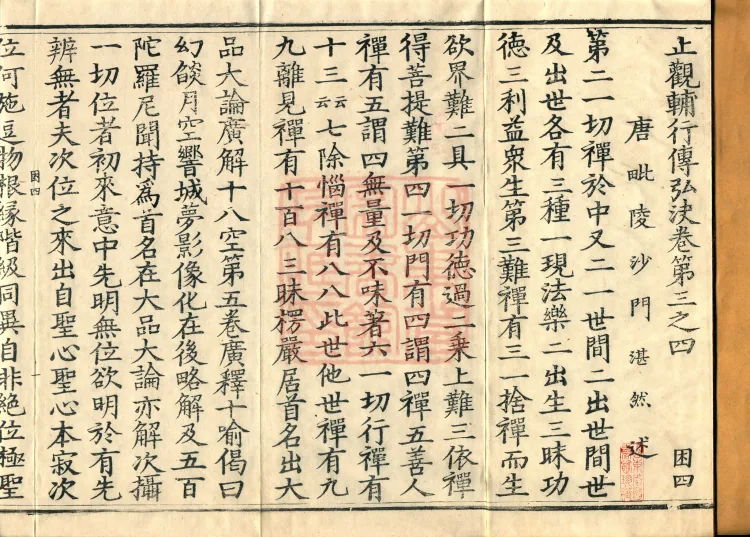 止觀輔行傳弘決卷第三之四 困四
唐毗陵沙門湛然述
第二一切禪於中又二一世間二出世間世
及出世各有三種一現法樂二出生三昧功
德三利益衆生第三難禪有三一捨禪而生
欲界難二具一切功德過二乗上難三依禪
得菩提難第四一切門有四謂四禪五善人
禪有五謂四無量及不味著六一切行禪有
十三云云七除惱禪有八八此世他世禪有九
九離見禪有十百八三昧楞嚴居首名出大
品大論廣解十八空第五卷廣釋十喻偈曰
幻燄月空響城夢影像化在後略解及五百
陀羅尼聞持爲首名在大品大論亦解次攝
一切位者初來意中先明無位欲明於有先
辨無者夫次位之來出自聖心聖心本寂次
困四
位何施逗物根縁階級同異自非絶位極聖